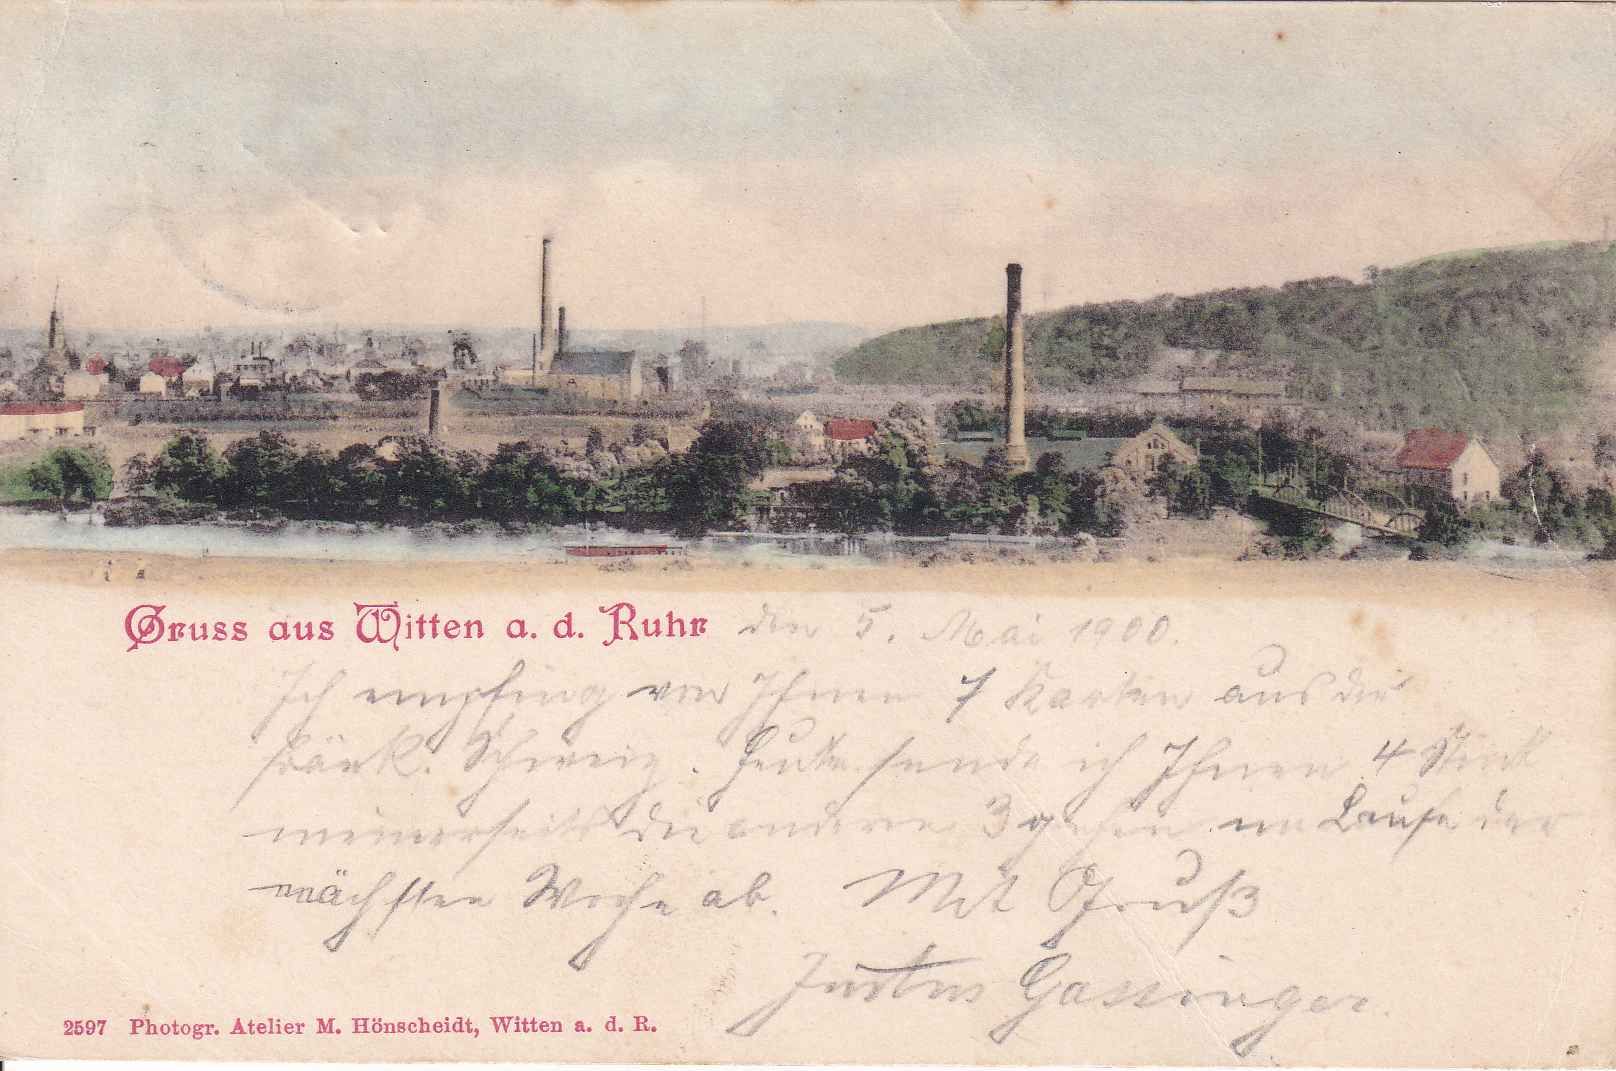 Gruss aus Witten a. d. Ruhr den 5. Mai 1900.
Ich empfing von Ihnen 7 Karten aus der
fränk. Schweiz. Heute sende ich Ihnen 4 Stück
meinerseits die anderen 3 gehen im Laufe der
nächsten Woche ab. Mit Gruß
Justus Gassinger.
2597 Photogr. Atelier M. Hönscheidt, Witten a. d. R.